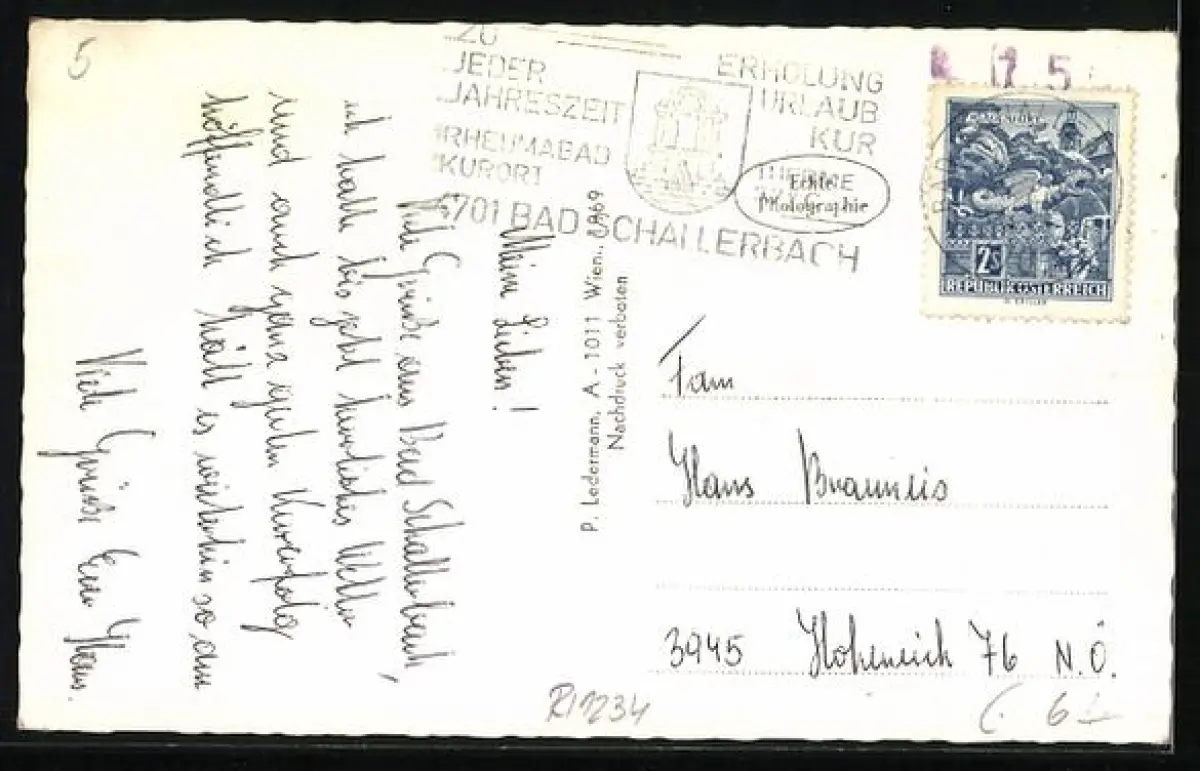 5
...ZU
...JEDER
...JAHRESZEIT
RHEUMABAD
KURORT
4701 BAD SCHALLERBACH
ERHOLUNG
URLAUB
KUR
THERME
Echte
Photographie
17 5
2S
REPUBLIK ÖSTERREICH
Meine Lieben!
Viele Grüße aus Bad Schallerbach,
ich hatte bis jetzt herrliches Wetter
und auch ganz guten Kurerfolg
hoffendlich hält es weiterhin so an
Viele Grüße Euer Hans.
P. Ledermann, A - 1011 Wien, 1969
Nachdruck verboten
Fam
Hans Braunleis
3945 Hoheneich 76 N.Ö.
R11234